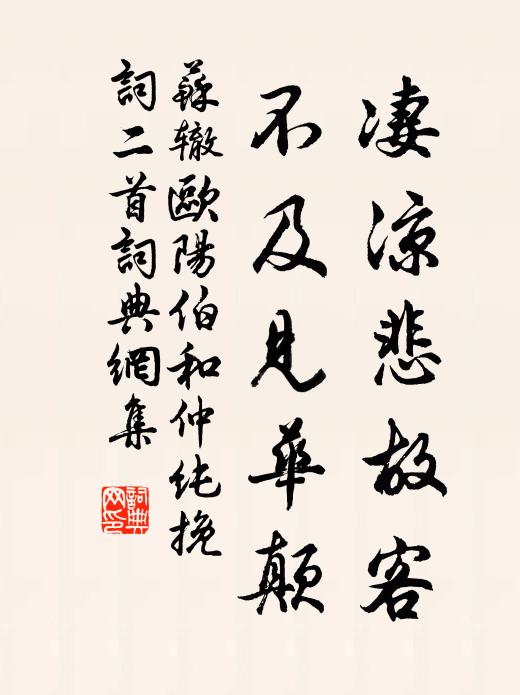 凄凉悲故客
不及見華顛
蘇辙歐陽伯和仲纯挽
詞二首詞典網集
詞典網印